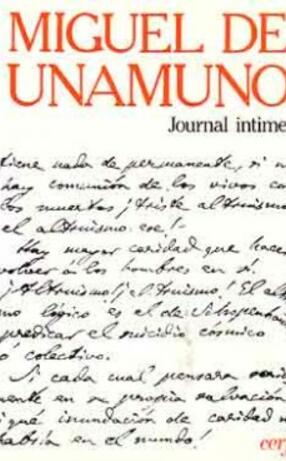 MIGUEL DE
UNAMUNO
Journal intime
tiene nada de permanente, si n
hay comunión de los vivos con
los muertos ¡triste altruismo
el altruismo ese!
Hay mayor caridad que hacer
volver á los hombres en sí.
¡Altruismo! ¡altruismo! El alt
mo lógico es el de Schopenhau
predicar el suicidio cósmico
ó colectivo.
Si cada cual pensara seria
mente en su propia salvación
¡qué inundación de caridad n
habría en el mundo!
cerf